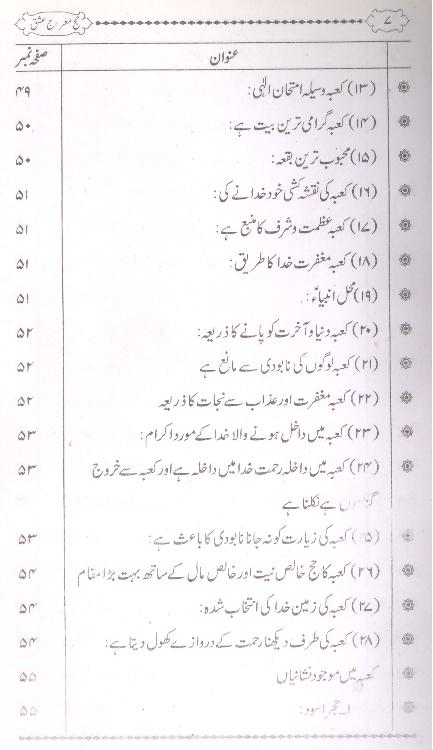 ۷ حج معراج عشق
عنوان صفحہ نمبر
(۱۳) کعبہ وسیلہ امتحان الٰہی: ۴۹
(۱۴) کعبہ گرامی ترین بیت ہے: ۵۰
(۱۵) محبوب ترین بقعہ: ۵۰
(۱۶) کعبہ کی نقشہ کشی خود خدا نے کی: ۵۱
(۱۷) کعبہ عظمت و شرف کا منبع ہے: ۵۱
(۱۸) کعبہ مغفرت خدا کا طریق: ۵۱
(۱۹) محل انبیاءؑ: ۵۱
(۲۰) کعبہ دنیا و آخرت کو پانے کا ذریعہ: ۵۲
(۲۱) کعبہ لوگوں کی نابودی سے مانع ہے ۵۲
(۲۲) کعبہ مغفرت اور عذاب سے نجات کا ذریعہ ۵۲
(۲۳) کعبہ میں داخل ہونے والا خدا کے مورد اکرام: ۵۳
(۲۴) کعبہ میں داخلہ رحمت خدا میں داخلہ ہے اور کعبہ سے خروج ۵۳
گناہوں سے نکلنا ہے
(۲۵) کعبہ کی زیارت کو نہ جانا نابودی کا باعث ہے: ۵۳
(۲۶) کعبہ کا حج خالص نیت اور خالص مال کے ساتھ بہت بڑا مقام ۵۴
(۲۷) کعبہ کی زمین خدا کی انتخاب شدہ: ۵۴
(۲۸) کعبہ کی طرف دیکھنا رحمت کے دروازے کھول دیتا ہے: ۵۴
کعبہ میں موجود نشانیاں ۵۵
۱۔ حجر اسود: ۵۵